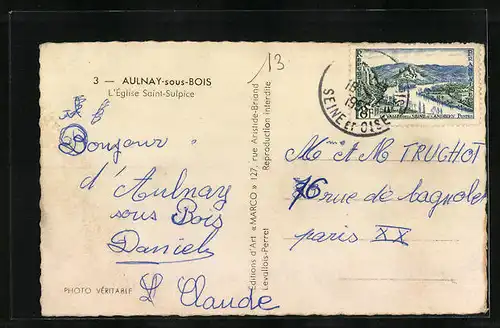 3 — AULNAY-sous-BOIS
L'Église Saint-Sulpice
Bonjour
d'Aulnay
sous Bois
Daniel
Claude
PHOTO VÉRITABLE
Éditions d'Art « MARCO » 127, rue Aristide-Briand
Levallois-Perret
Reproduction interdite
13
SEINE ET OISE
8F
Mme et M TRUCHOT
76 rue de bagnolet
paris XX